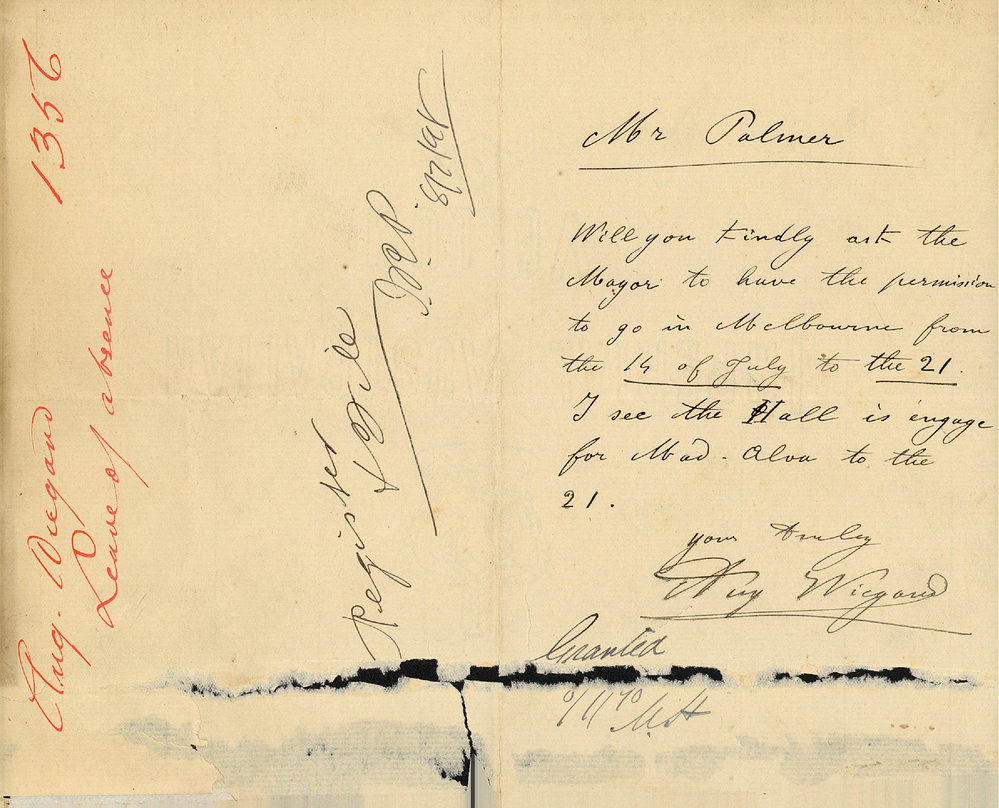 Mr Palmer
Will you kindly ask the
Mayor to have the permission
to go in Melbourne from
the 14 of July to the 21.
I see the Hall is engage
for Mad. Alva to the
21.
your truly
Aug Wiegand
Granted
Register
& File
8/7/98
Aug. Wiegand
Leave of absence
1356